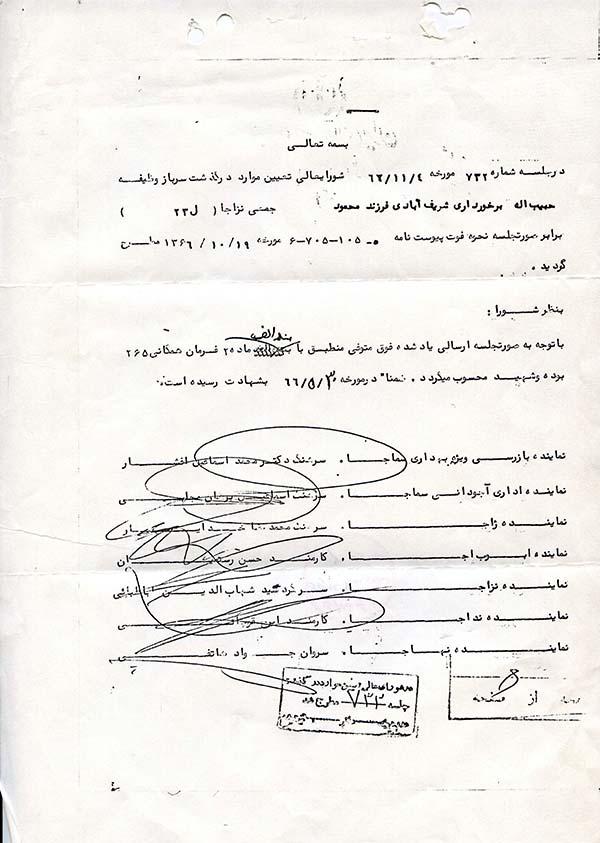 بسمه تعالی
درجلسه شماره ۷۳۲ مورخه ۶۶/۱۱/۴ شورایعالی تعیین موارد درگذشت سرباز وظیفه
حبیب اله برخورداری شریف آبادی فرزند محمود جمعی نزاجا ( ل ۲۳ )
برابر صورتجلسه نحوه فوت پیوست نامه ۵-۱۰۵-۷۰۵-۶ مورخه ۱۳۶۶/۱۰/۱۹ مطرح
گردید .
بنظر شورا :
بند الف
باتوجه به صورتجلسه ارسالی یاد شده فوق متوفی منطبق با ماده ۲ فرمان همگانی ۲۶۵
بوده وشهید محسوب میگردد . ضمنا" درمورخه ۶۶/۵/۳ بشهادت رسیده است.
نماینده بازرسی ویژه بهداری سماجا . سرهنگ دکتر محمد اسماعیل افشار
نماینده اداری آجودانی سماجا . سرهنگ
نماینده ژاجا . سرهنگ محمد
نماینده اجا . کارمند حسن
نماینده نزاجا . سرگرد سید شهاب الدین
نماینده نداجا . کارمند
نماینده نهاجا . سروان جواد هاتفی
جلسه ۷۳۲ مطرح شد
از صفحه